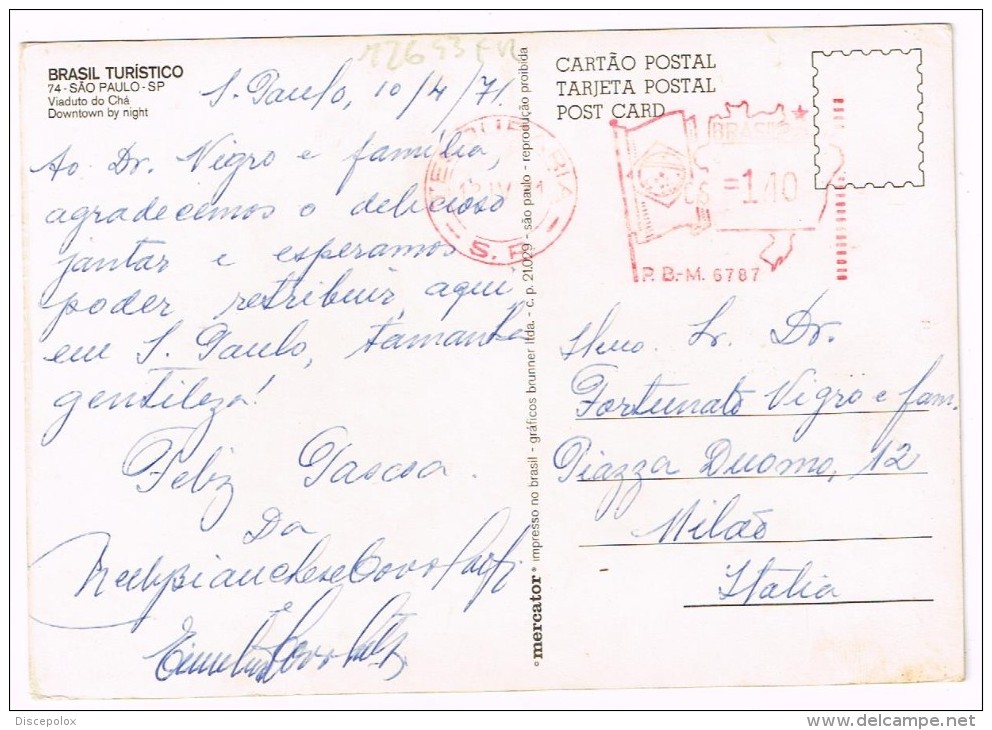 12653 FR
BRASIL TURÍSTICO
74 - SÃO PAULO - SP
Viaduto do Chá
Downtown by night
S. Paulo, 10/4/71.
Ao Dr. Vigro e família,
agradecemos o delicioso
jantar e esperamos
poder retribuir, aqui
em S. Paulo, tamanha
gentileza!
Feliz Pascoa.
Da
e
CARTÃO POSTAL
TARJETA POSTAL
POST CARD
BRASIL
=1,40
S. P.
P. B.-M. 6787
Ilmo. Sr. Dr.
Fortunato Vigro e fam.
Piazza Duomo, 12
Milão
Italia
mercator impresso no brasil - gráficos brunner ltda. - c. p. 21.029 - são paulo - reprodução proibida
Discepolox
delcampe.net